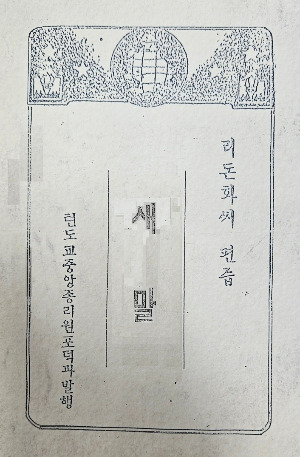 리돈화씨 편즙
새말
텬도교중앙총리원포덕과발행